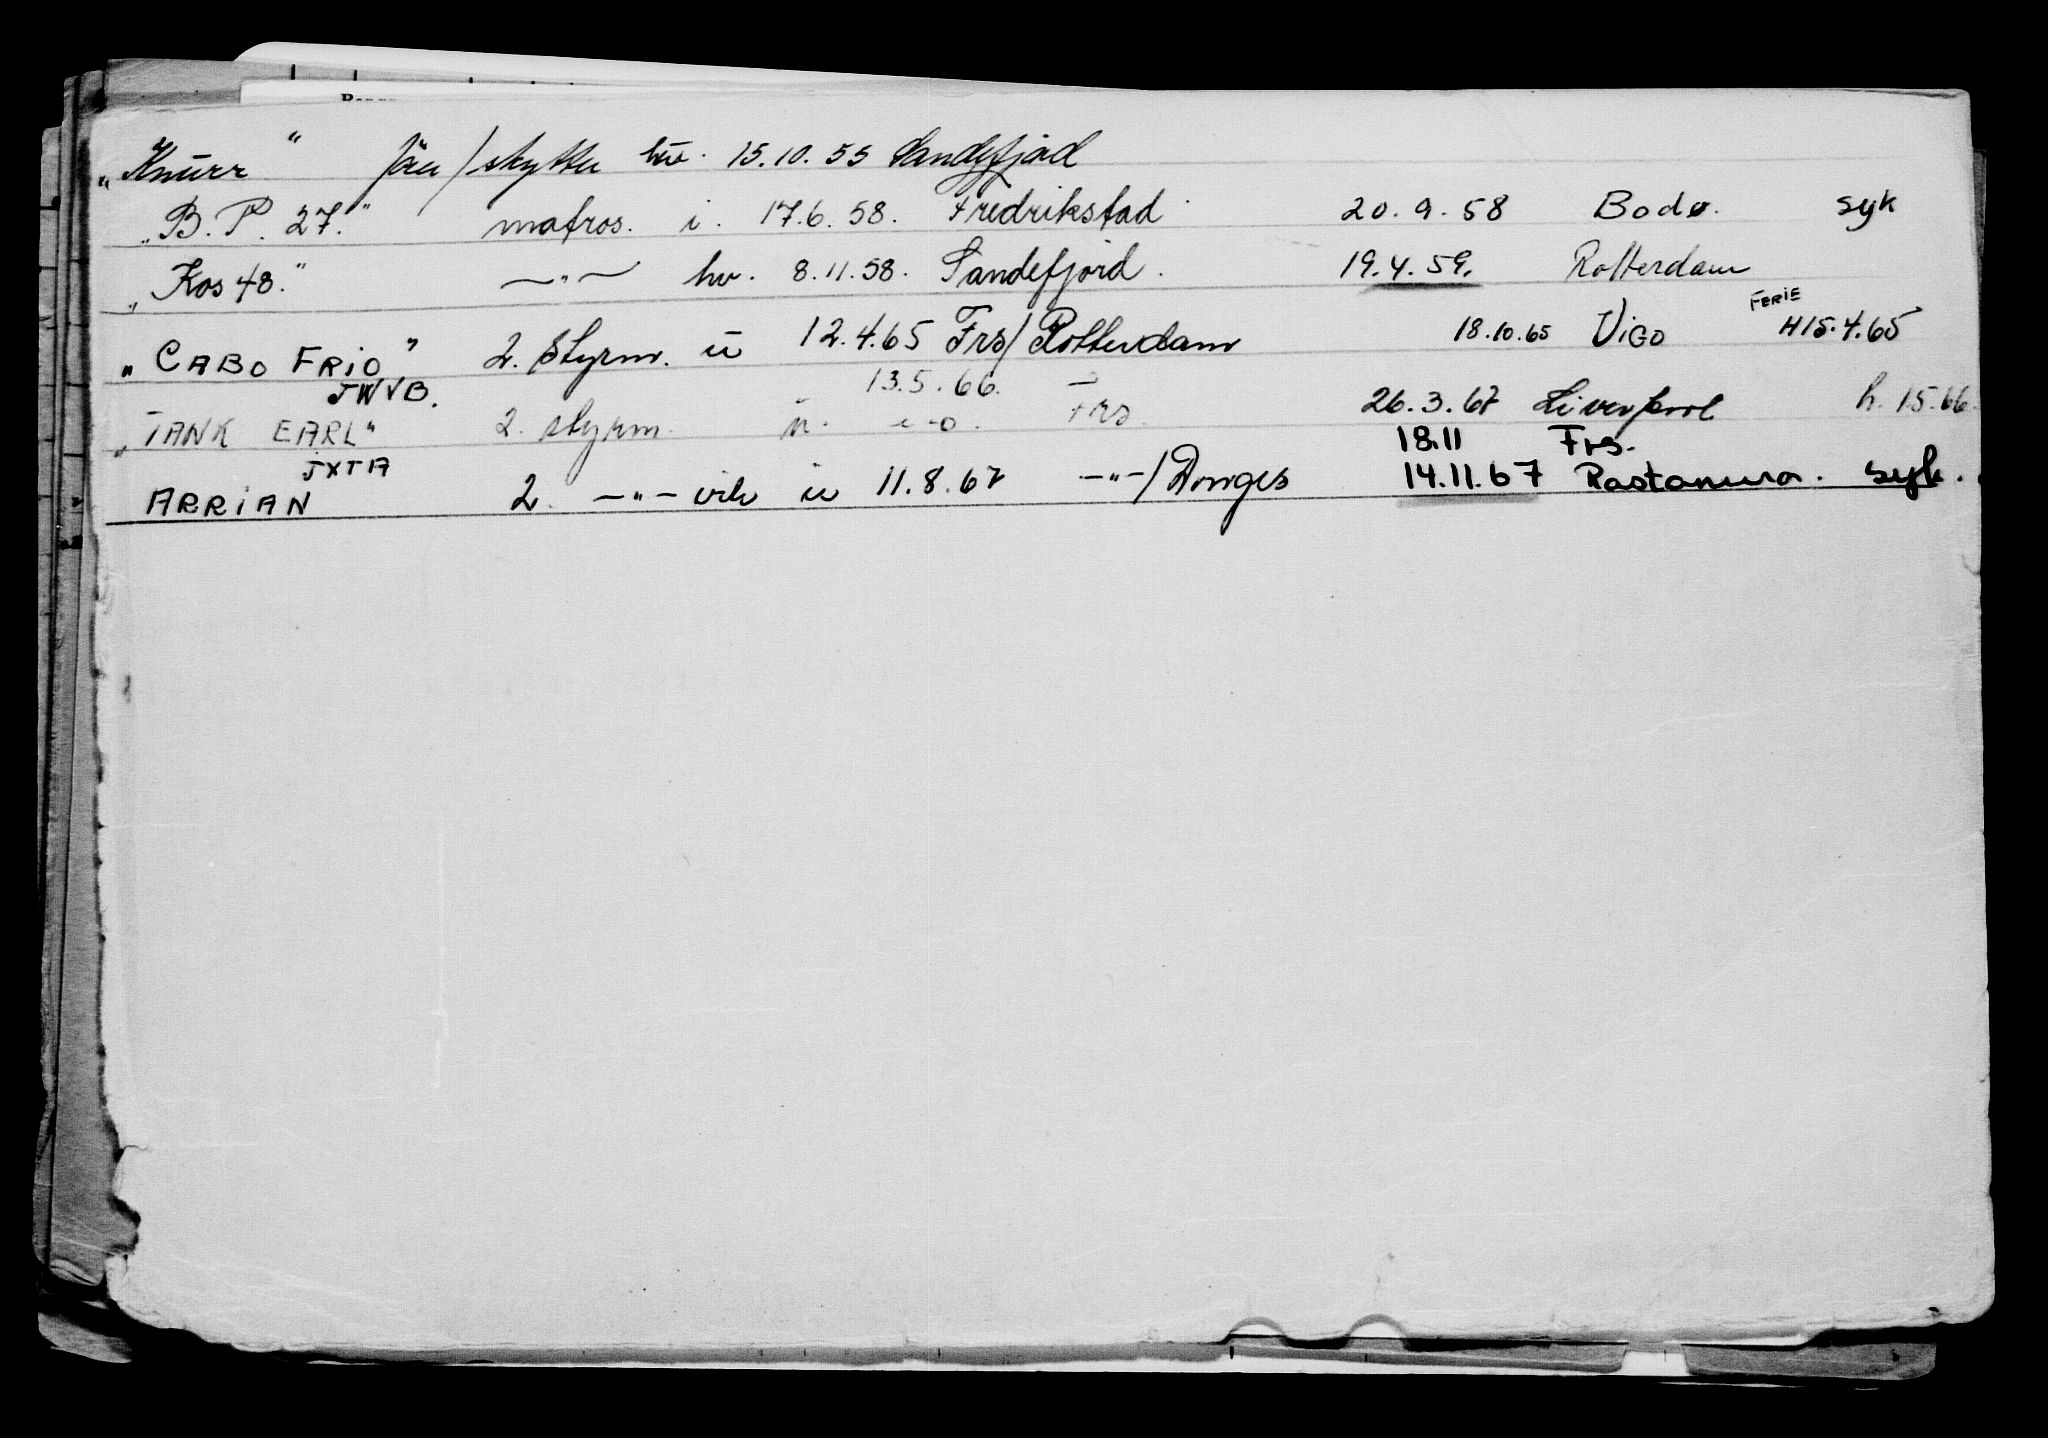 „Knurr" /skytter hv. 15.10.55 Sandefjord
„B.P. 27." matros. i. 17.6.58. Fredrikstad 20.9.58 Bodø. syk
„Kos 48." —"— hv. 8.11.58. Sandefjord. 19.4.59. Rotterdam
„CABO FRIO" 2. styrm. u 12.4.65 Frs/Rotterdam 18.10.65 VIGO FERIE H15.4.65
JWVB. 13.5.66.
„TANK EARL" 2. styrm. u. Frs. 26.3.67 Liverpool h. 1.5.66.
JXTA 18.11 Frs.
ARRIAN 2. —"— vik u 11.8.67 —"—/Donges 14.11.67 Rastanura. syk.